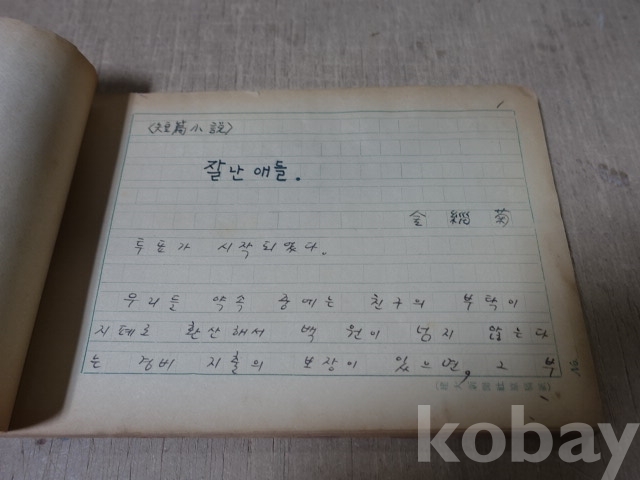 1
〈短篇小說〉
잘난 애들.
金 菊
투표가 시작되었다.
우리들 약속 중에는 친구의 부탁이
지폐로 환산해서 백 원이 넘지 않는다
는 경비 지출의 보장이 있으면, 그 부
No.
kobay